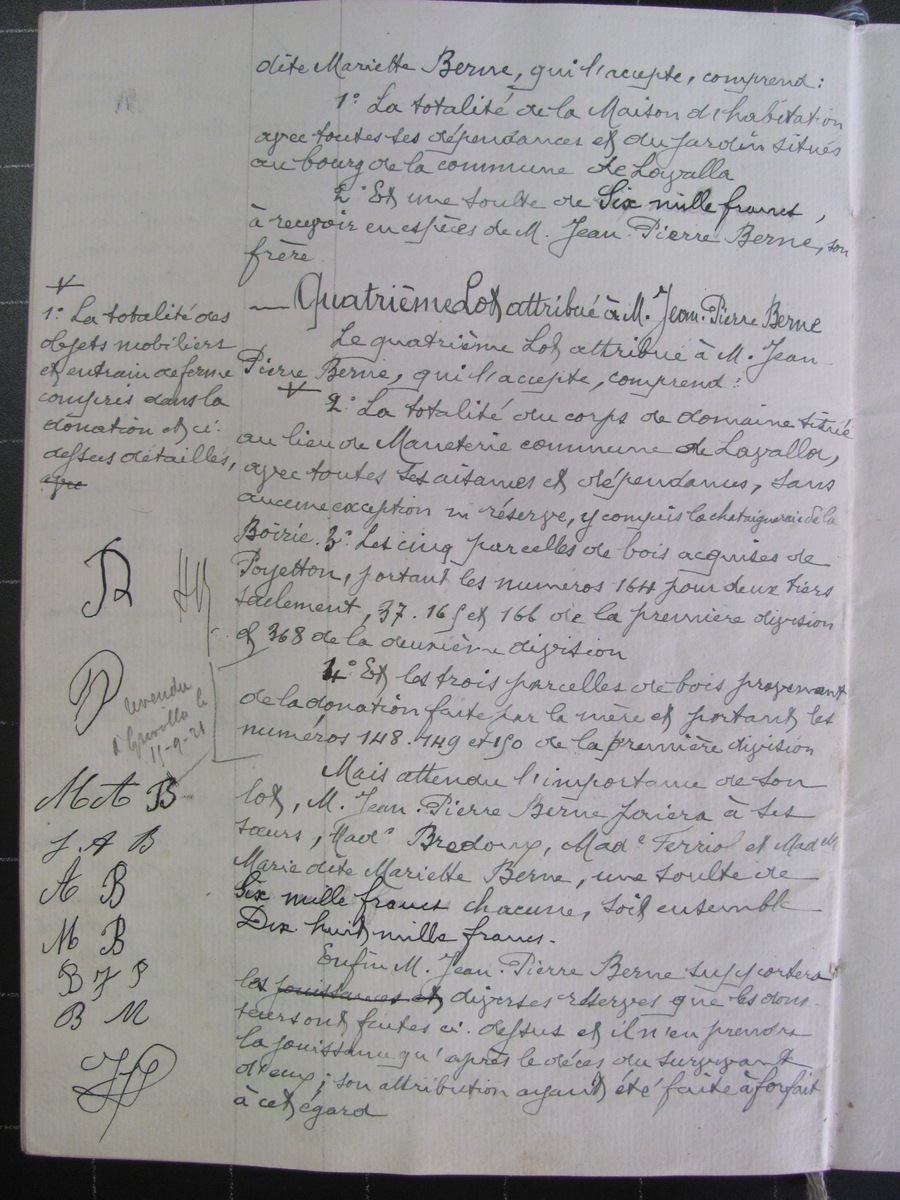 dite Mariette Berne, qui l'accepte, comprend :
1° La totalité de la Maison d'habitation
avec toutes ses dépendances et du jardin situés
au bourg de la commune de Lavalla
2° Et une soulte de Six mille francs,
à recevoir en espèces de M. Jean-Pierre Berne, son
frère
— Quatrième Lot attribué à M. Jean-Pierre Berne
Le quatrième Lot attribué à M. Jean-
Pierre Berne, qui l'accepte, comprend :
2° La totalité du corps de domaine situé
au lieu de commune de Lavalla,
avec toutes ses aisances et dépendances, sans
aucune exception ni réserve, y compris la chataigneraie de la
Boirie. 3° Les cinq parcelles de bois acquises de
Poyetton, portant les numéros 164 pour deux tiers
seulement, 37. 165 et 166 de la première division
et 368 de la deuxième division
4° Et les trois parcelles de bois provenant
de la donation faite par la mère et portant les
numéros 148. 149 et 150 de la première division
Mais attendu l'importance de son
lot, M. Jean-Pierre Berne paiera à ses
sœurs, Mad^e Bredoux, Mad^e Ferriol et Mad^elle
Marie dite Mariette Berne, une soulte de
Six mille francs chacune, soit ensemble
Dix huit mille francs.
Enfin M. Jean-Pierre Berne supportera
les jouissances et diverses réserves que les dona-
teurs ont faites ci-dessus et il n'en prendra
la jouissance qu'après le décès du survivant
d'eux ; son attribution ayant été faite à forfait
à cet égard
1° La totalité des
objets mobiliers
et entrain de ferme
compris dans la
donation et ci-
dessus détaillés,
avec
revendu
à le
15-9-21
M A B
J. A B
A B
M B
B J P
B M